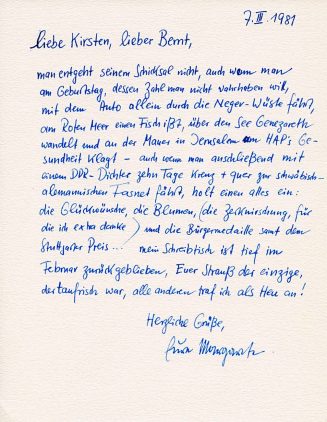 7. III 1981
liebe Kirsten, lieber Bernt,
man entgeht seinem Schicksal nicht, auch wenn man
am Geburtstag, dessen Zahl man nicht wahrhaben will,
mit dem Auto allein durch die Neger-Wüste fährt,
am Roten Meer einen Fisch ißt, über den See Genezareth
wandelt und an der Mauer in Jerusalem um HAP's Ge-
sundheit klagt - auch wenn man anschließend mit
einem DDR-Dichter zehn Tage kreuz + quer zur schwäbisch-
alemannischen Fasnet fährt, holt einen alles ein:
die Glückwünsche, die Blumen, (die Zerknirschung, für
die ich extra danke) und die Bürgermedaille samt dem
Stuttgarter Preis... mein Schreibtisch ist tief im
Februar zurückgeblieben, Euer Strauß der einzige,
der taufrisch war, alle anderen traf ich als Heu an!
Herzliche Grüße,